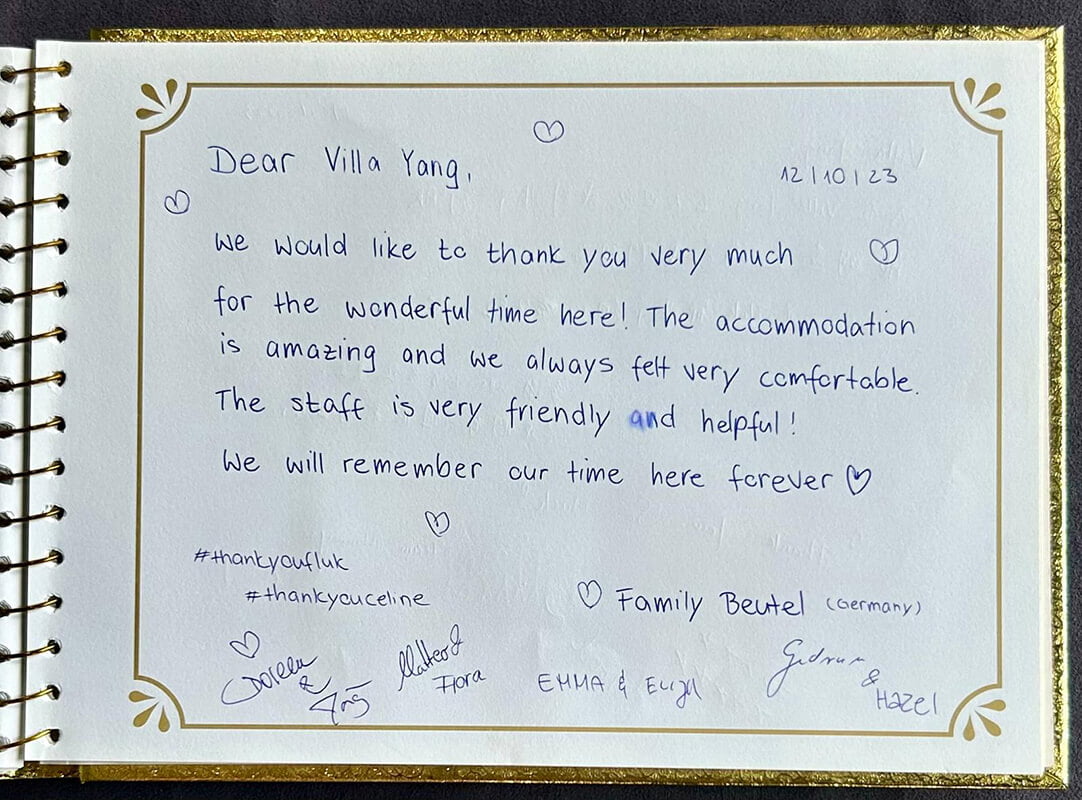 Dear Villa Yang,
12/10/23
We would like to thank you very much
for the wonderful time here! The accommodation
is amazing and we always felt very comfortable.
The staff is very friendly and helpful!
We will remember our time here forever
#thankyoufluk
#thankyouceline
Family Beutel (Germany)
Doreen &
Matteo &
Fiora
EMMA &
Gudrun
&
Hazel